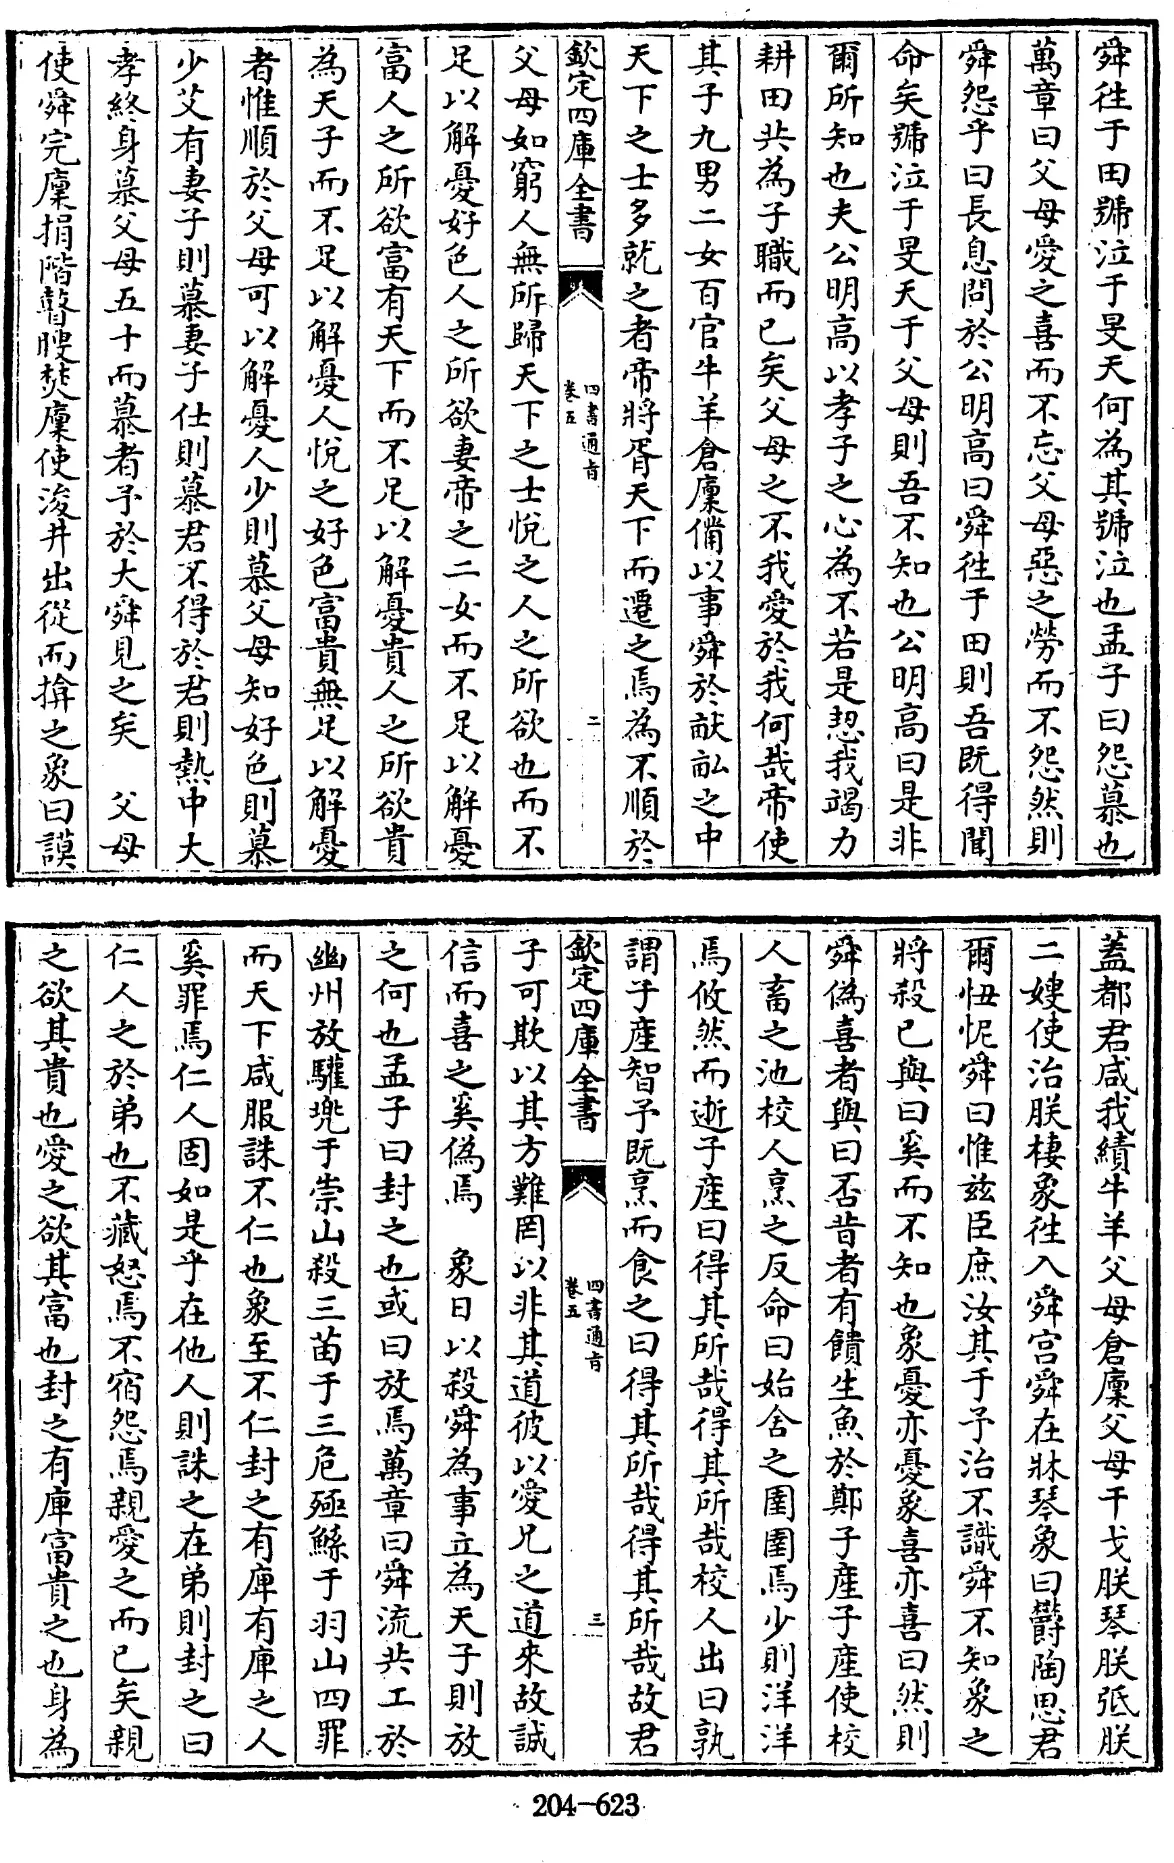 舜往于田號泣于旻天何為其號泣也孟子曰怨慕也
萬章曰父母愛之喜而不忘父母惡之勞而不怨然則
舜怨乎曰長息問於公明高曰舜往于田則吾既得聞
命矣號泣于旻天于父母則吾不知也公明高曰是非
爾所知也夫公明高以孝子之心為不若是恝我竭力
耕田共為子職而已矣父母之不我愛於我何哉帝使
其子九男二女百官牛羊倉廩備以事舜於畎畝之中
天下之士多就之者帝將胥天下而遷之焉為不順於
欽定四庫全書
四書通旨
卷五
二
父母如窮人無所歸天下之士悅之人之所欲也而不
足以解憂好色人之所欲妻帝之二女而不足以解憂
富人之所欲富有天下而不足以解憂貴人之所欲貴
為天子而不足以解憂人悅之好色富貴無足以解憂
者惟順於父母可以解憂人少則慕父母知好色則慕
少艾有妻子則慕妻子仕則慕君不得於君則熱中大
孝終身慕父母五十而慕者予於大舜見之矣 父母
使舜完廩捐階瞽瞍焚廩使浚井出從而揜之象曰謨
蓋都君咸我績牛羊父母倉廩父母干戈朕琴朕弤朕
二嫂使治朕棲象往入舜宮舜在牀琴象曰鬱陶思君
爾忸怩舜曰惟茲臣庶汝其于予治不識舜不知象之
將殺已與曰奚而不知也象憂亦憂象喜亦喜曰然則
舜偽喜者與曰否昔者有饋生魚於鄭子產子產使校
人畜之池校人烹之反命曰始舍之圉圉焉少則洋洋
焉攸然而逝子產曰得其所哉得其所哉校人出曰孰
謂子產智予既烹而食之曰得其所哉得其所哉故君
欽定四庫全書
四書通旨
卷五
三
子可欺以其方難罔以非其道彼以愛兄之道來故誠
信而喜之奚偽焉 象日以殺舜為事立為天子則放
之何也孟子曰封之也或曰放焉萬章曰舜流共工於
幽州放驩兜于崇山殺三苗于三危殛鯀于羽山四罪
而天下咸服誅不仁也象至不仁封之有庳有庳之人
奚罪焉仁人固如是乎在他人則誅之在弟則封之曰
仁人之於弟也不藏怒焉不宿怨焉親愛之而已矣親
之欲其貴也愛之欲其富也封之有庳富貴之也身為
204-623